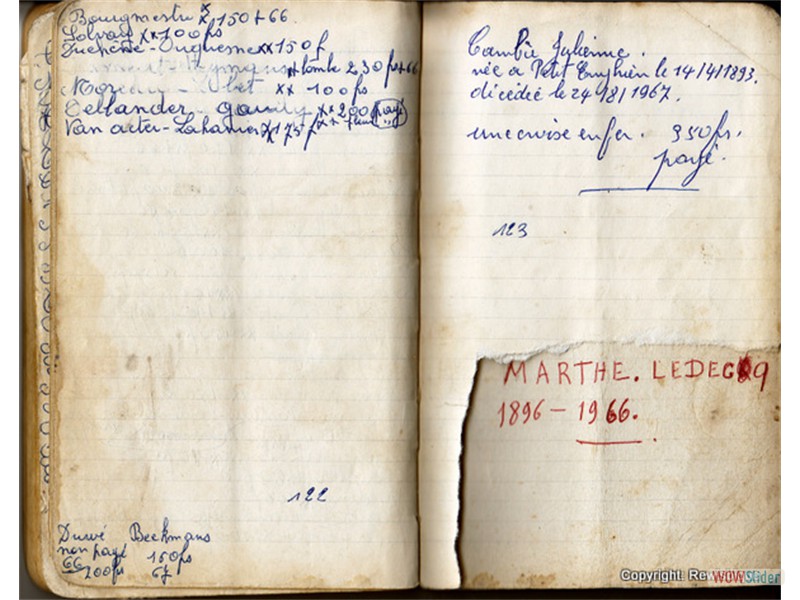 Bourgmestre x 150 + 66.
Solvay xx 100 fs
Duchène - Duquesne xx 150 f
+ tombe 230 fs + 66
Moreau - xx - 100 fs
Dellander - xx 200 payé
Van acter - Lahamer xx 175 f
122
Duwé Beekmans
non payé 150 fs
66 67
200 fs
Cambie Julienne.
née a Petit Enghien le 14/4/1893.
décédée le 24/8/1967.
une croise en fer. 350 fs.
payé.
123
MARTHE. LEDEC
1896 - 1966.
Copyright.
WOWSlider